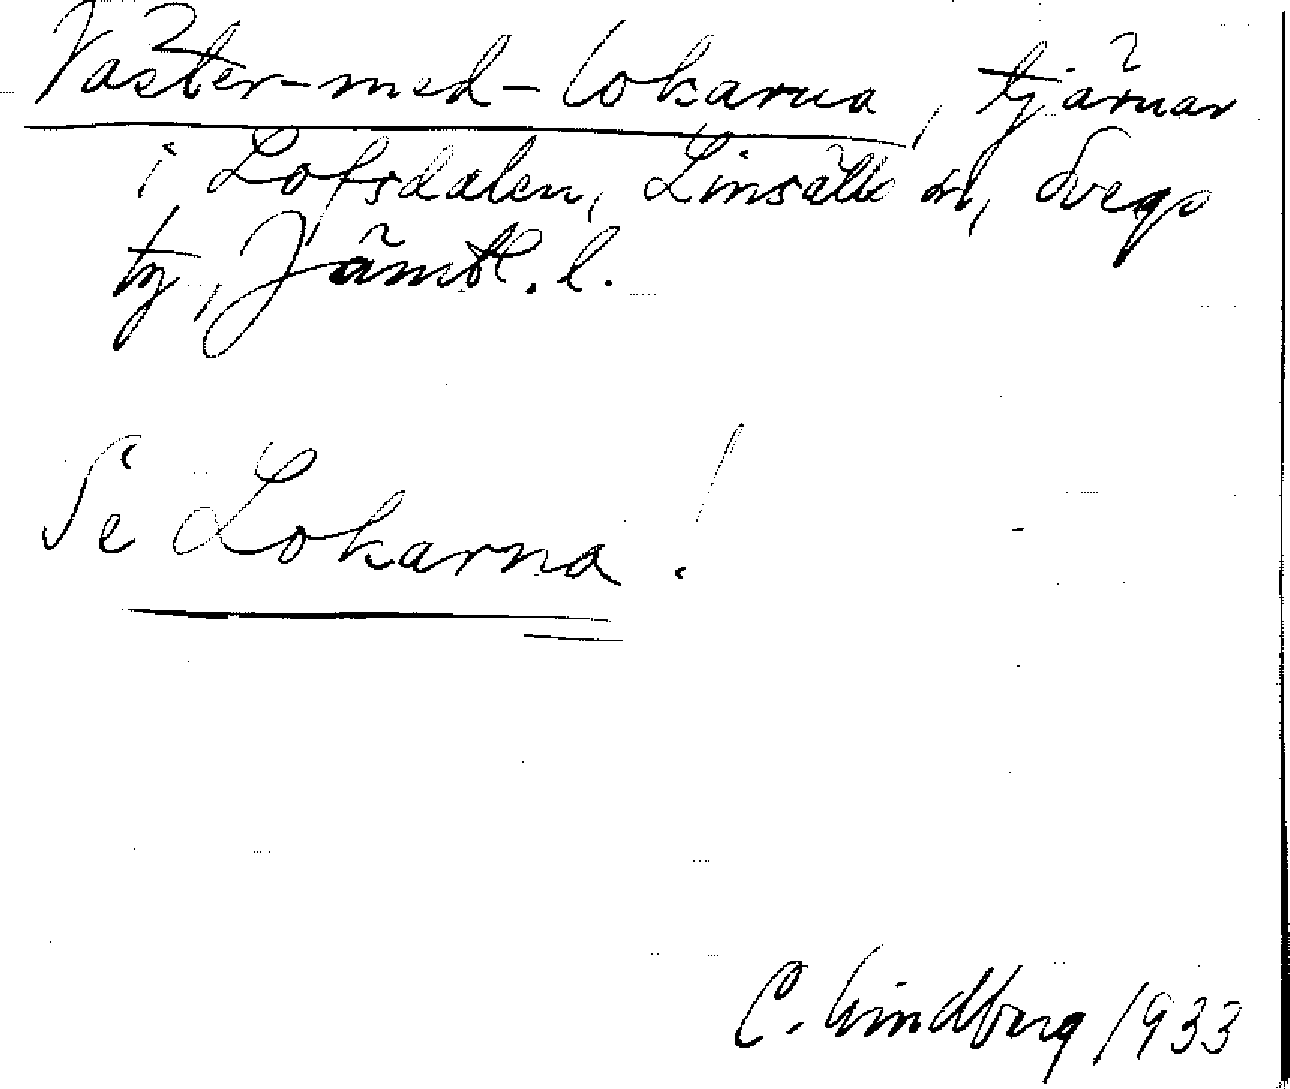 Väster-med-lokarna, tjärnar
i Lofsdalen, Linsälls sn, Svegs
tg, Jämtl. l.
Se Lokarna!
C. Lindberg 1933